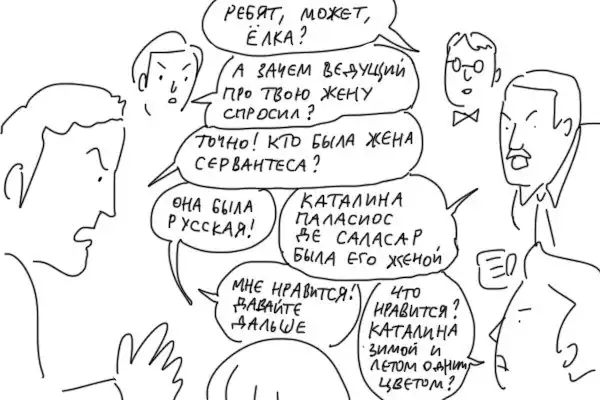 РЕБЯТ, МОЖЕТ,
ЁЛКА?
А ЗАЧЕМ ВЕДУЩИЙ
ПРО ТВОЮ ЖЕНУ
СПРОСИЛ?
ТОЧНО! КТО БЫЛА ЖЕНА
СЕРВАНТЕСА?
ОНА БЫЛА
РУССКАЯ!
КАТАЛИНА
ПАЛАСИОС
ДЕ САЛАСАР
БЫЛА ЕГО ЖЕНОЙ
МНЕ НРАВИТСЯ!
ДАВАЙТЕ
ДАЛЬШЕ
ЧТО
НРАВИТСЯ?
КАТАЛИНА
ЗИМОЙ И
ЛЕТОМ ОДНИМ
ЦВЕТОМ?